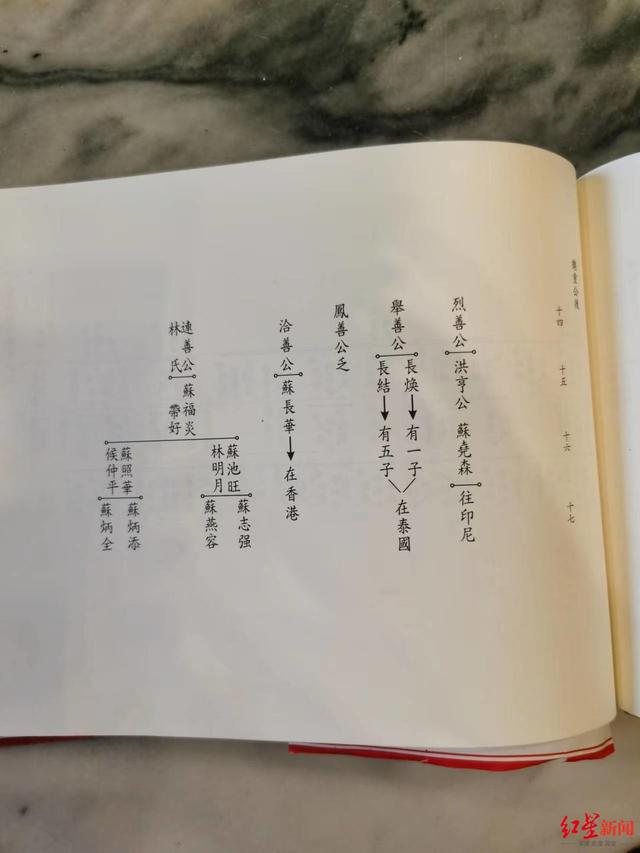 十四
十五
十六
十七
烈善公
洪亨公
蘇堯森
往印尼
舉善公
長煥
有一子
長結
有五子
在泰國
鳳善公乏
洽善公
蘇長華
在香港
連善公
林氏
蘇福炎
帶好
蘇池旺
林明月
蘇志强
蘇燕容
蘇照華
候仲平
蘇炳添
蘇炳全
红星新闻